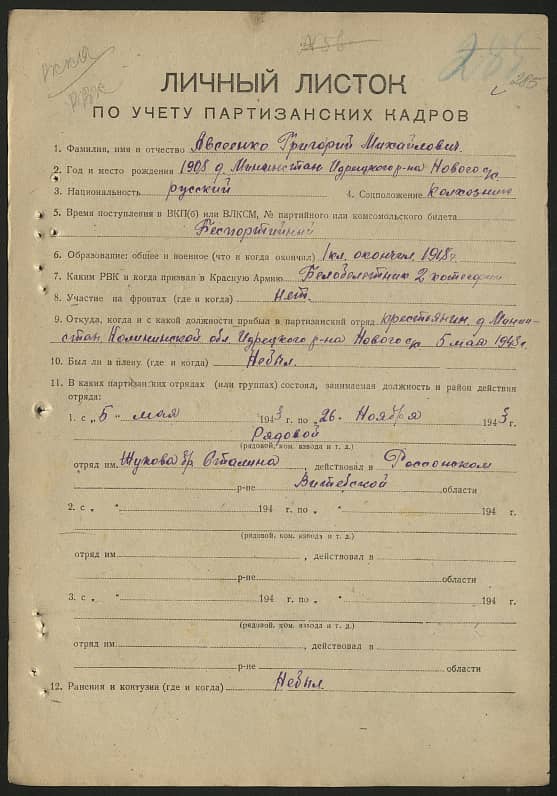 № 56
288
285
РККА
РВК
ЛИЧНЫЙ ЛИСТОК
ПО УЧЕТУ ПАРТИЗАНСКИХ КАДРОВ
1. Фамилия, имя и отчество Авсеенко Григорий Михайлович.
2. Год и место рождения 1908 д. Идрицкого р-на Нового с/с
3. Национальность русский 4. Соцположение колхозник
5. Время поступления в ВКП(б) или ВЛКСМ, № партийного или комсомольского билета
Беспортийный
6. Образование: общее и военное (что и когда окончил) 1 кл. окончил 1918 г.
7. Каким РВК и когда призван в Красную Армию Белобелетник 2 котегории
8. Участие на фронтах (где и когда) Нет.
9. Откуда, когда и с какой должности прибыл в партизанский отряд крестьянин д.
стан Калининской обл. Идрецкого р-на Нового с/с 5 мая 1943 г.
10. Был ли в плену (где и когда) Небыл.
11. В каких партизанских отрядах (или группах) состоял, занимаемая должность и район действия
отряда:
1. с „5" мая 1943 г. по „26. Ноября 1943 г.
Рядовой
(рядовой, ком. взвода и т. д.)
отряд им. Шукова бр. Сталина, действовал в Россонском
р-не Витебской области
2. с „ " 194 г. по „ " 194 г.
(рядовой, ком. взвода и т. д.)
отряд им. , действовал в
р-не области
3. с „ " 194 г. по „ " 194 г.
(рядовой, ком. взвода и т. д.)
отряд им. , действовал в
р-не области
12. Ранения и контузия (где и когда) Небыл